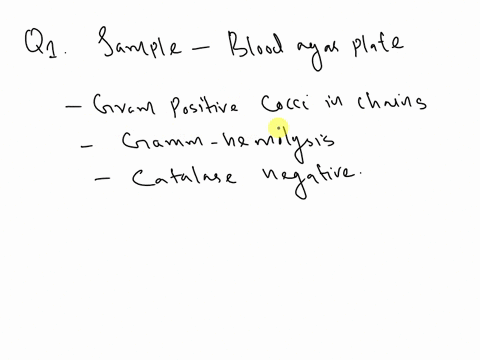 Q1. Sample - Blood agar plate
- Gram Positive Cocci in chains
- Gamm-hemilysis
- Catalase negative.